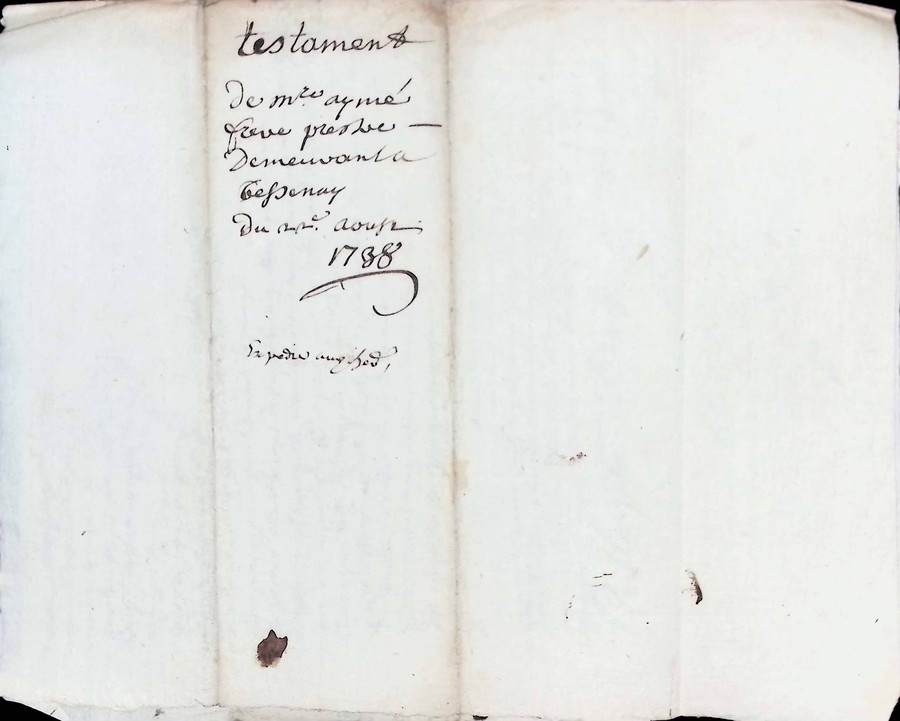 testament
De m.re aymé
frere prestre —
Demeurant a
tessenay
Du 22e. Aoust
1788
Expedié